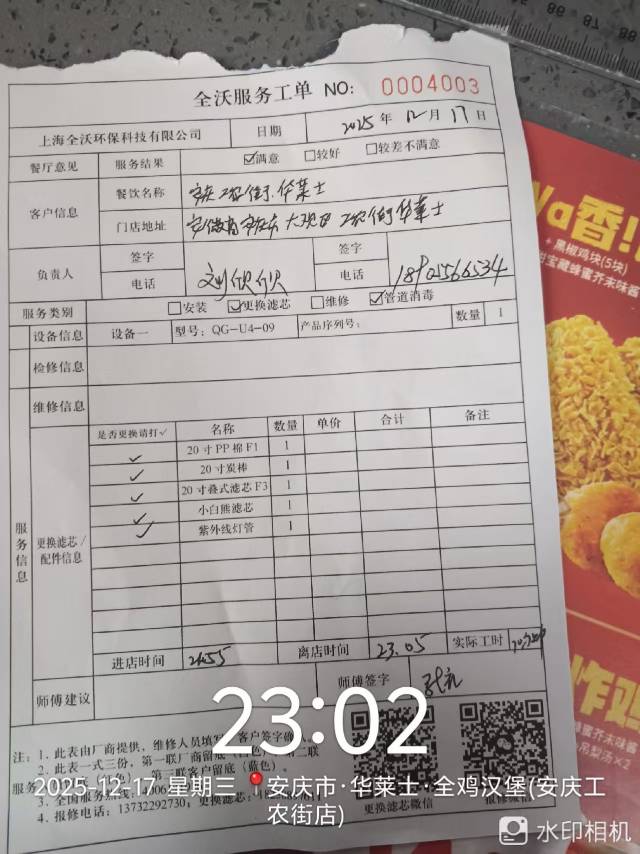 全沃服务工单 NO: 0004003
上海全沃环保科技有限公司 日期 2025 年 12 月 17 日
餐厅意见 服务结果 ☑满意 □较好 □较差不满意
客户信息 餐饮名称 安庆工农街.华莱士
门店地址 安徽省安庆市大观区工农街华莱士
负责人 签字 签字
电话 刘欣欣 电话
服务类别 □安装 ☑更换滤芯 □维修 ☑管道消毒
设备信息 设备一 型号: QG-U4-09 产品序列号: 数量 1
检修信息
维修信息
服务信息
更换滤芯/配件信息
是否更换请打✓ 名称 数量 单价 合计 备注
✓ 20寸PP棉F1 1
✓ 20寸炭棒 1
✓ 20寸叠式滤芯F3 1
✓ 小白熊滤芯 1
✓ 紫外线灯管 1
进店时间 离店时间 23.05 实际工时
师傅建议 师傅签字
注: 1. 此表由厂商提供，维修人员填写 客户签字确
2. 此表一式三份，第一联厂商留底 第二联
服务 第三联客户留底（蓝色）。
3. 全国服务热线:
4. 报修电话: 13732292730; 更换滤芯:
更换滤芯微信 报修微信
23:02
2025-12-17 星期三 安庆市·华莱士·全鸡汉堡(安庆工
农街店)
水印相机
香!
+ 黑椒鸡块(5块)
甜宝藏蜂蜜芥末味酱
炸鸡
蜂蜜芥末味酱
吊梨汤×2